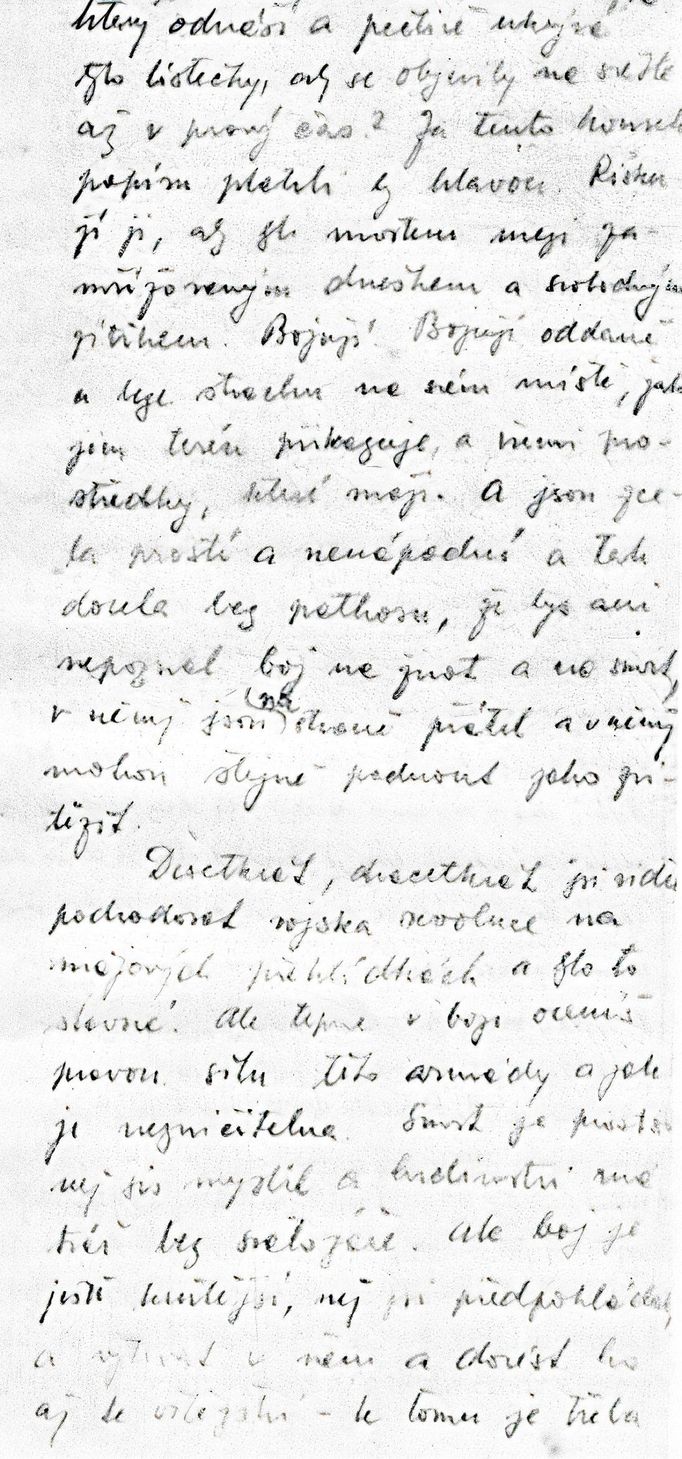 který odnáší a pečlivě ukrývá
tyto lístečky, aby se objevily na světle
až v pravý čas? Za tento kousek
papíru platili by hlavou. Risku-
jí ji, aby šli mostem mezi za-
mřížovaným dneškem a svobodným
zítřkem. Bojují. Bojují oddaně
a beze strachu na svém místě, jak
jim terén přikazuje, a všemi pro-
středky, které mají. A jsou zce-
la prostí a nenápadní a tak
docela bez pathosu, že bys ani
nepoznal boj na život a na smrt,
v němž jsou na straně přátel a v němž
mohou stejně padnout jako zví-
tězit.
Desetkrát, dvacetkrát jsi viděl
pochodovat vojska revoluce na
májových přehlídkách a šlo to
slavně. Ale teprve v boji oceníš
pravou sílu této armády a jak
je nezničitelná. Smrt je prostší
než sis myslil a hrdinství má
tvář bez svatozáře. Ale boj je
ještě krutější, než jsi předpokládal,
a vytrvat v něm a dovést ho
až k vítězství – k tomu je třeba